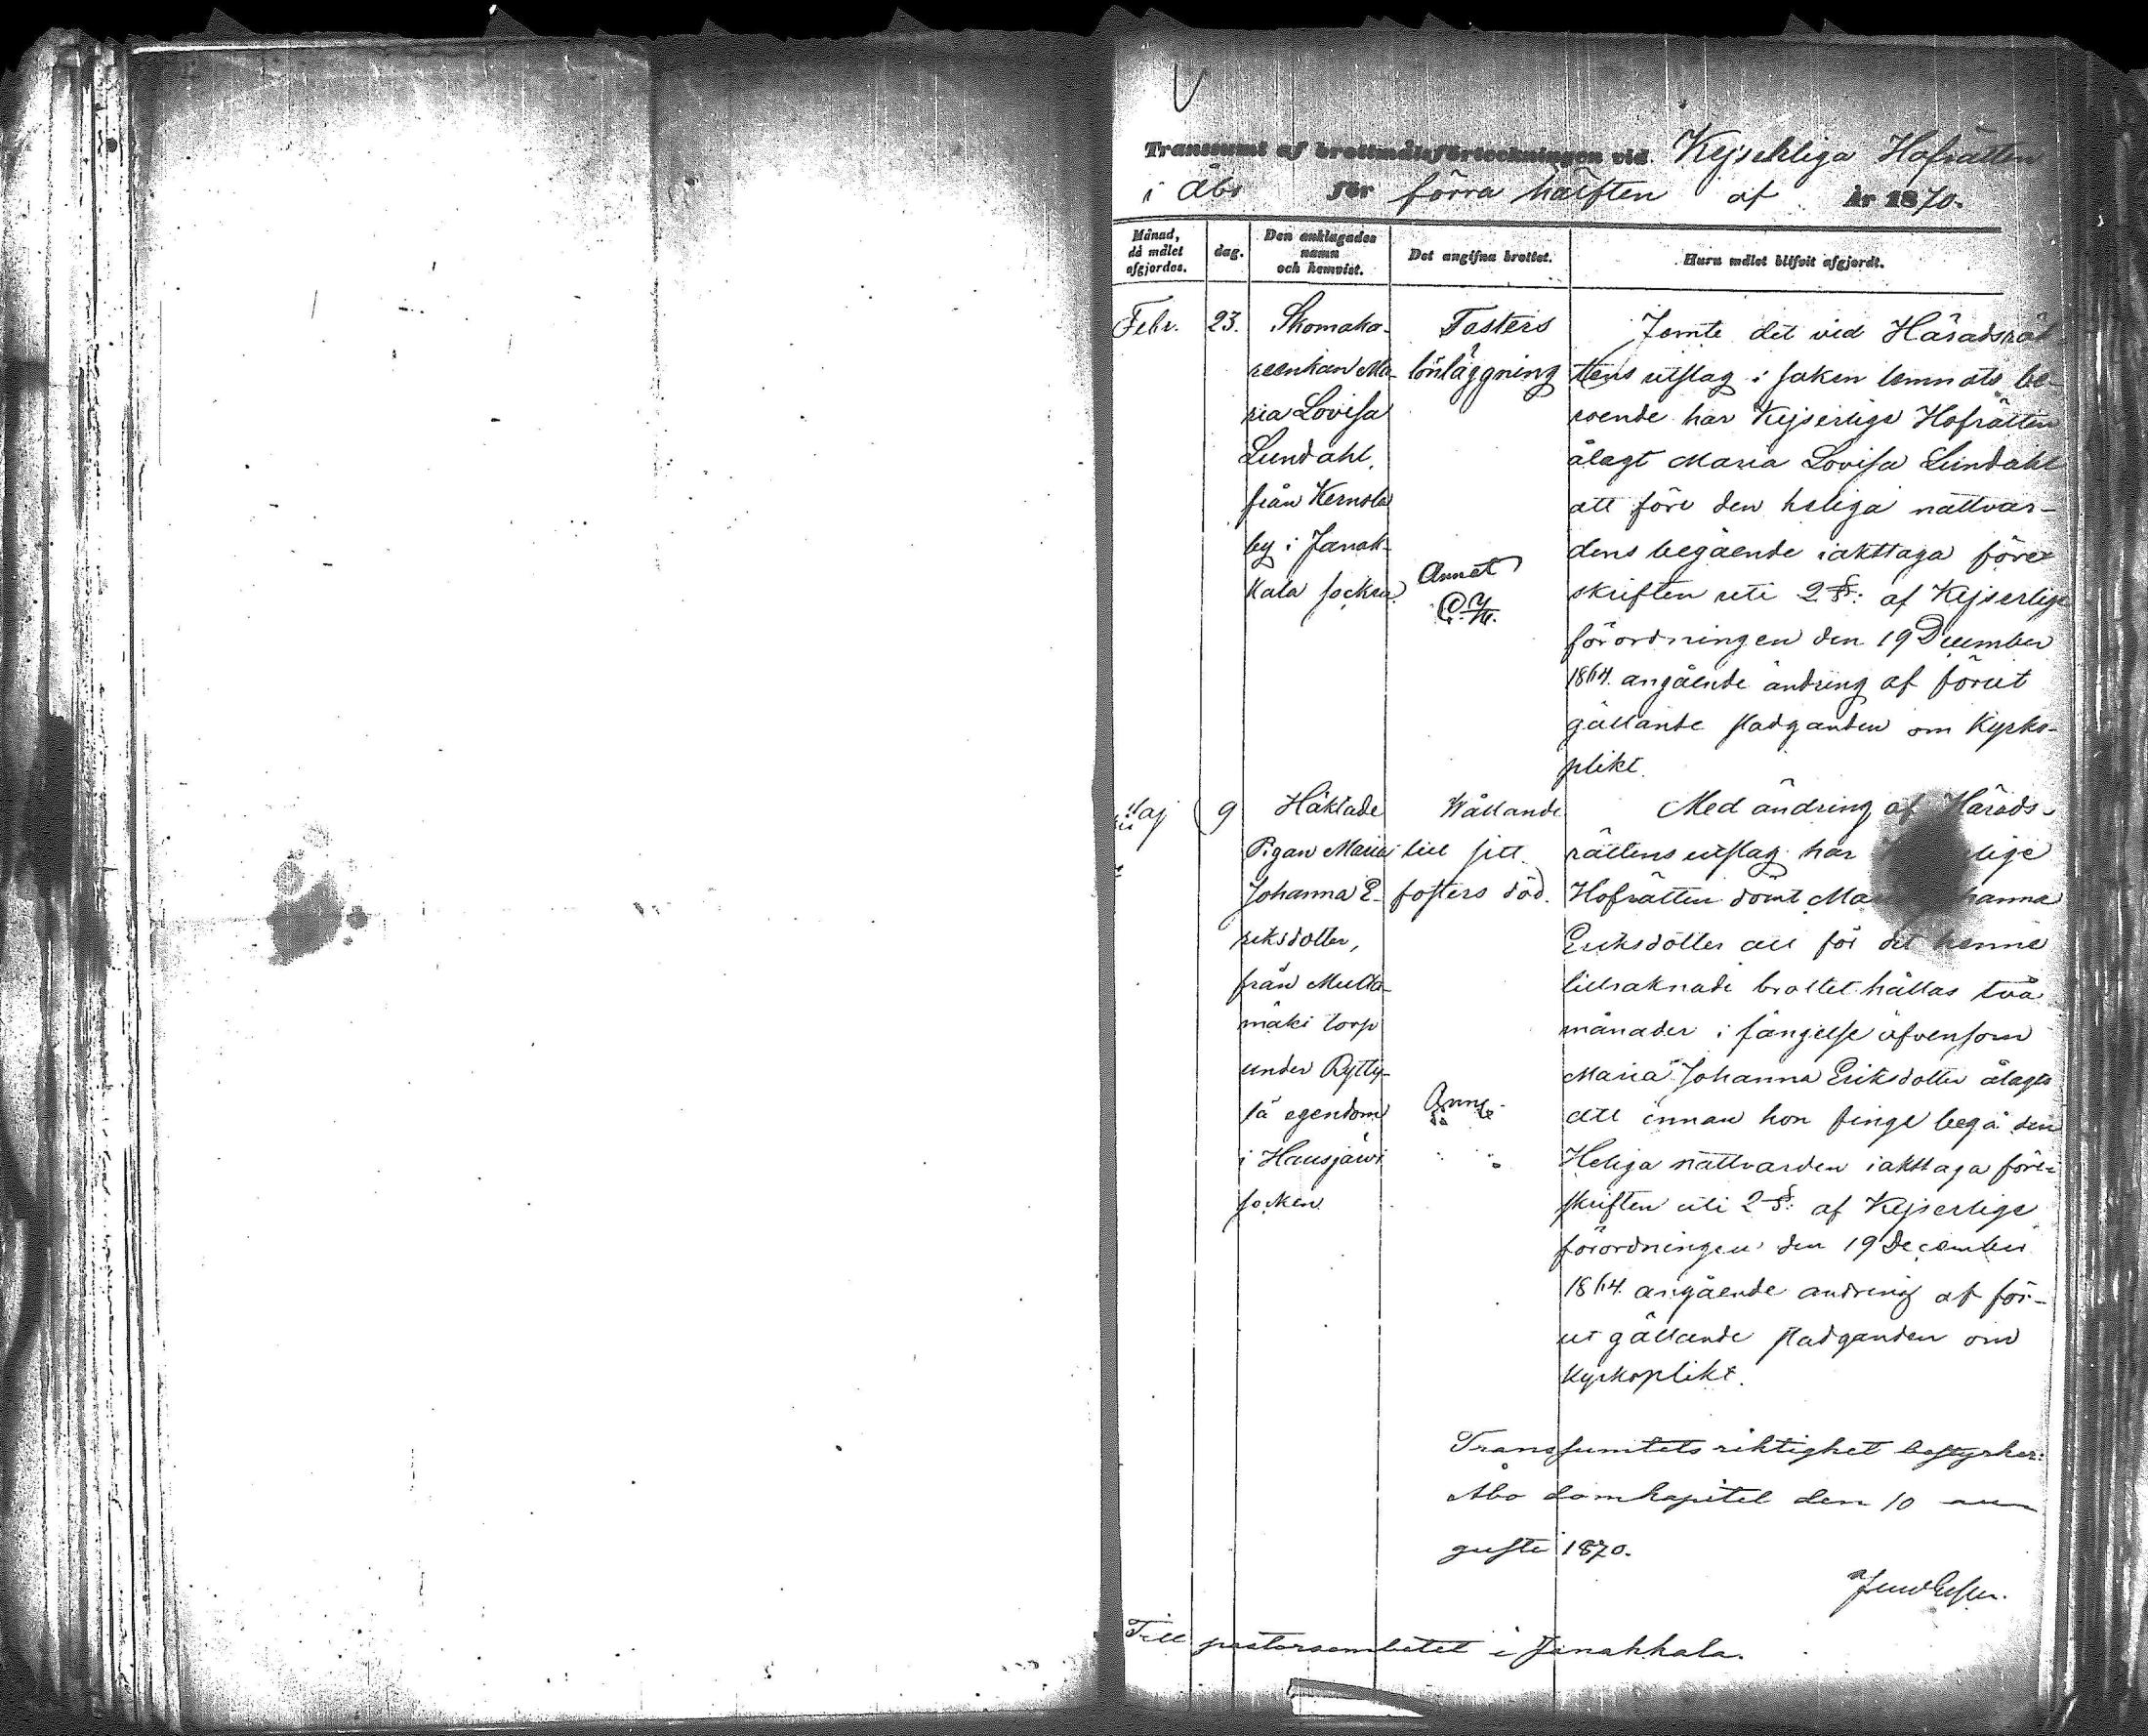 Transsumt af brottmålsförteckningen vid Kejserliga Hofrätten
i Åbo för förra hälften af år 1870.
Månad, då målet afgjordes.
dag.
Den anklagades namn och hemvist.
Det angifna brottet.
Huru målet blifvit afgjordt.
Febr. 23.
Skomaka-
reenkan Ma-
ria Lovisa
Lundahl,
från Kernola
by i Janak-
kala socken
Fosters
lönläggning
Annot
Jemte det vid Häradsrät-
tens utslag i saken lemnats be-
roende har Kejserliga Hofrätten
ålagt Maria Lovisa Lundahl
att före den heliga nattvar-
dens begående iakttaga före-
skriften uti 2 §: af Kejserliga
förordningen den 19 December
1864 angående ändring af förut
gällande stadganden om kyrko-
plikt.
Maj 9
Häktade
Pigan Maria
Johanna E-
riksdotter,
från Multa-
mäki torp
under Rytty-
lä egendom
i Hausjärvi
socken
Vållande
till sitt
fosters död.
Med ändring af Härads-
rättens utslag har
Hofrätten dömt Maria Johanna
Eriksdotter att för det henne
tillräknade brottet hållas två
månader i fängelse äfvensom
Maria Johanna Eriksdotter ålagts
att innan hon finge begå den
Heliga nattvarden iakttaga före-
skriften uti 2 §: af Kejserliga
förordningen den 19 December
1864 angående ändring af för-
ut gällande stadganden om
kyrkoplikt.
Transsumtets riktighet bestyrker:
Åbo domkapitel den 10 au-
gusti 1870.
Till pastorsembetet i Janakkala.